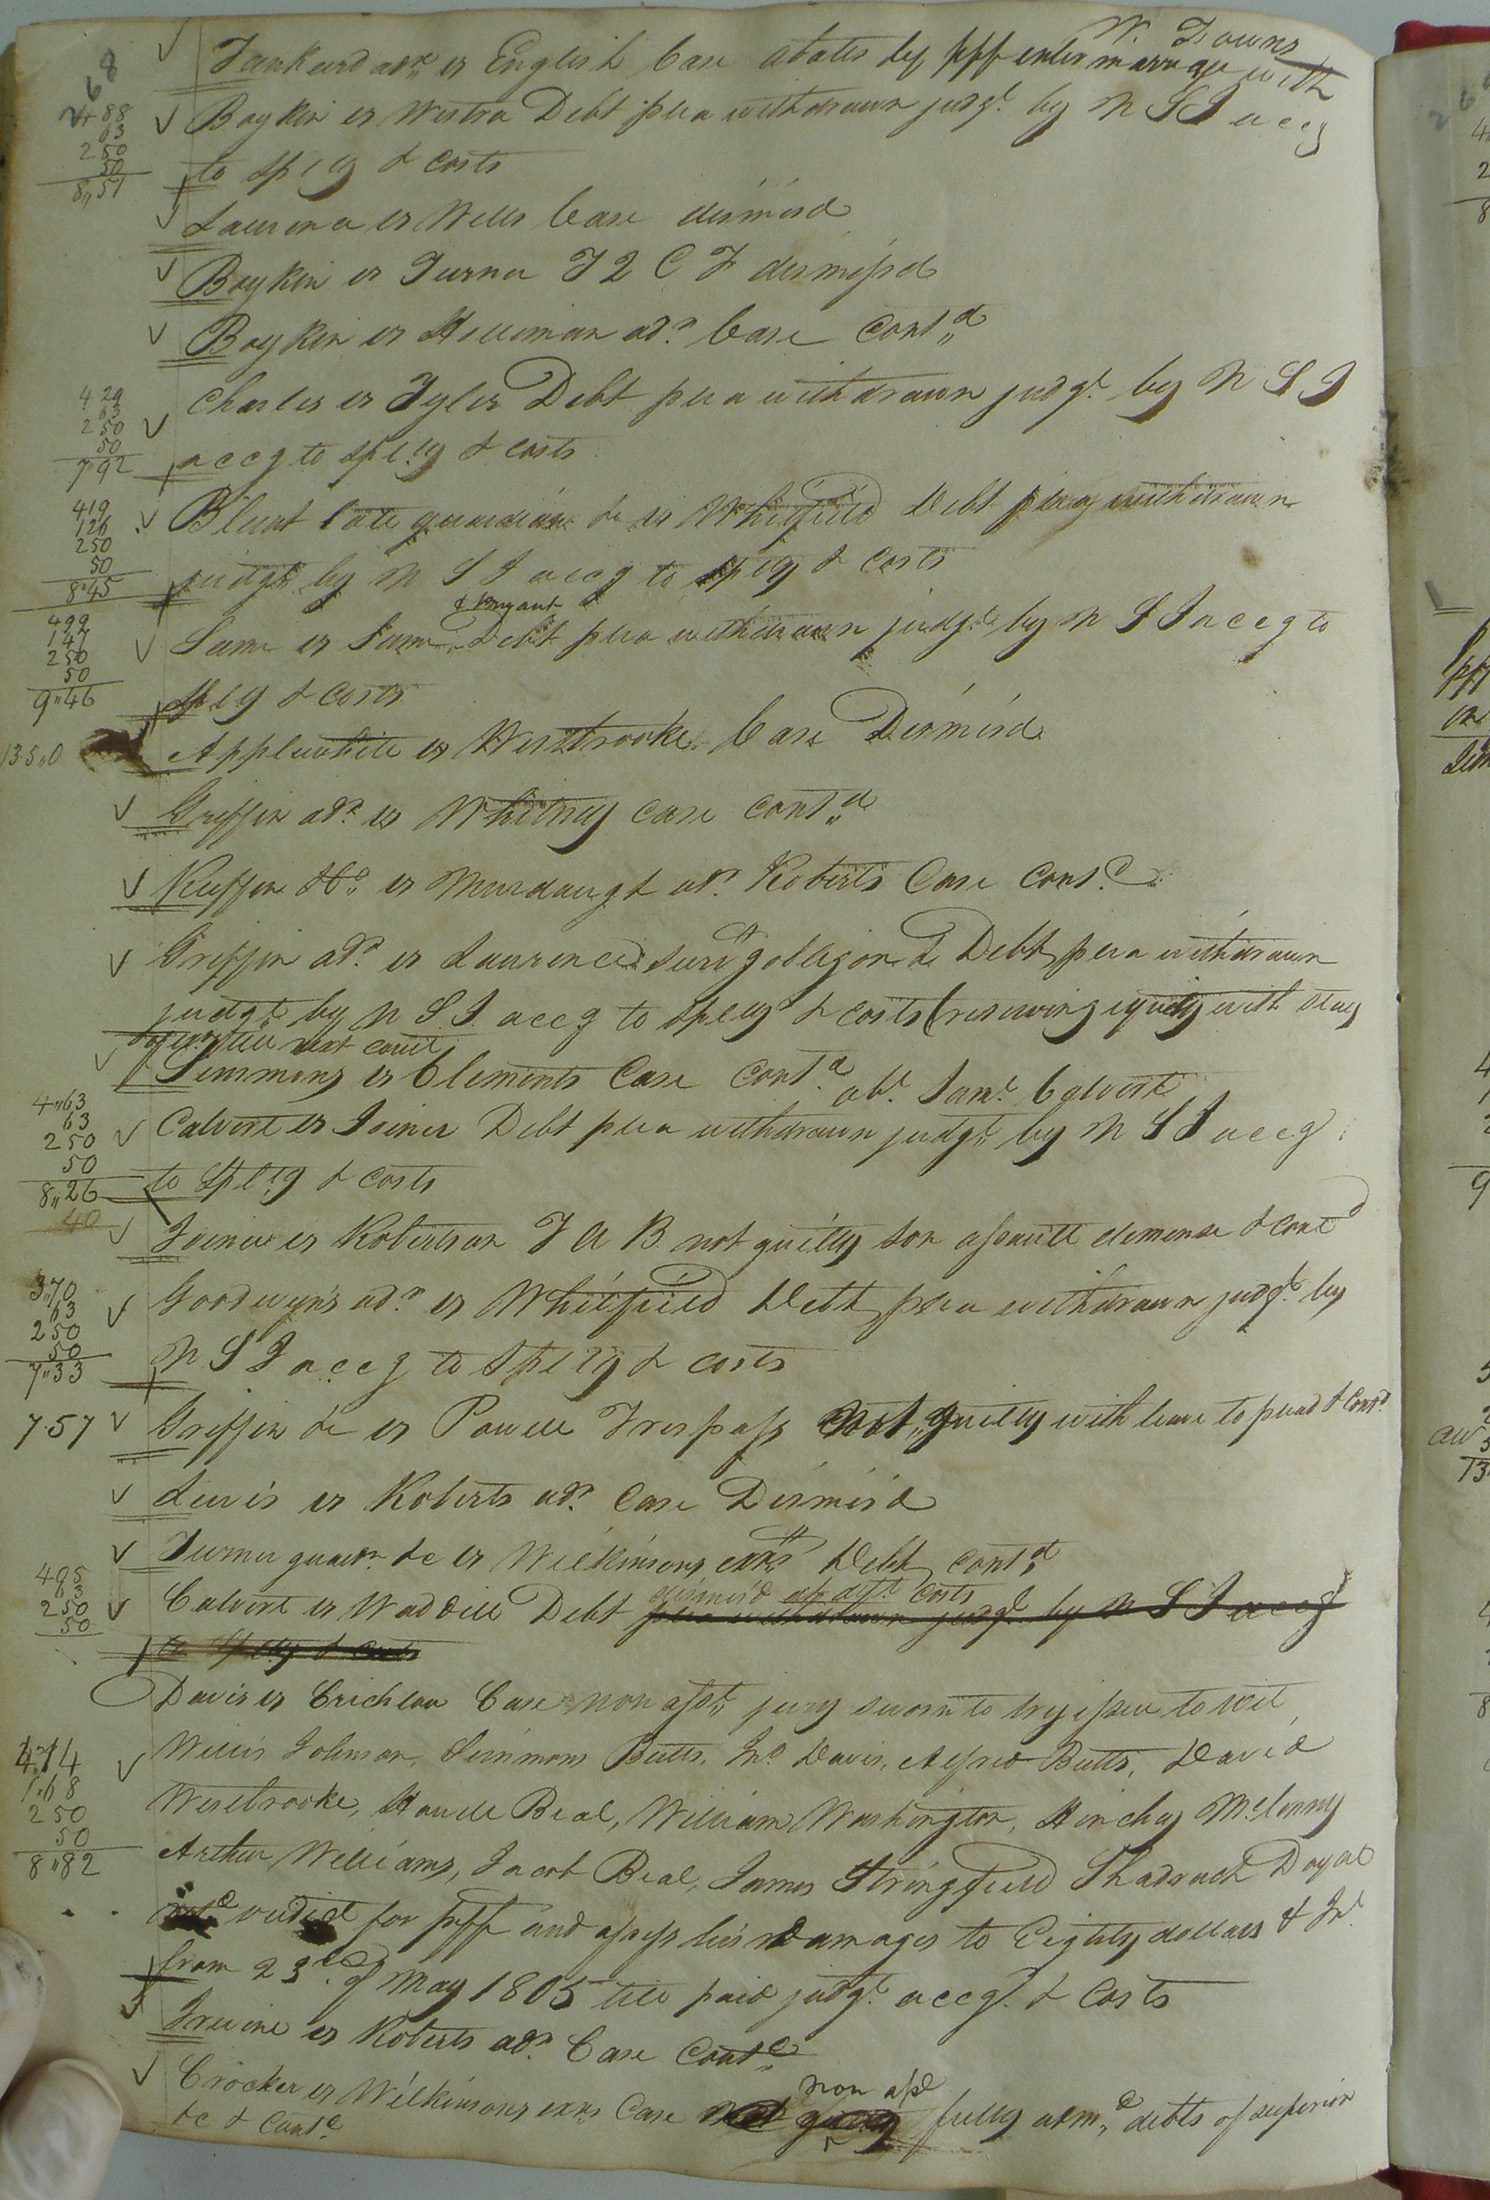 268
W. Towns
Tankard adx. vs English Case abates by plf intermarriage with
488
63
250
50
8,,51
Boykin vs Westra Debt plea withdrawn judgt. by N S I accg
to Splcy & costs
Laurence vs Wells Case dismisd
Boykin vs Turner T 2 C F dismissd
Boykin vs Holliman adr. Case Contd
429
63
250
50
7"92
Charles vs Tyler Debt plea withdrawn judgt. by N S I
accg to Splcy & costs
419
126
250
50
8"45
Blunt late guardian &c vs Whitfield Debt plea withdrawn
judgt. by N S I accg to Splcy & costs
499
147
250
50
9"46
& Bryant
Same vs Same Debt plea withdrawn judgt. by N S I accg to
Splcy & costs
13.50
Applewhite vs Westbrooke Case Dismisd
Griffin adr. vs Whitney Case Contd
Ruffin & Co. vs Murdaugh adr. Roberts Case Contd.
Griffin adr. vs Laurence Debt plea withdrawn
judgt. by N S I accg to Splcy & costs (reserving equity with stay
till next court
Simmons vs Clements Case Contd.
abt. Saml. Calvert
4"63
63
250
50
8,,26
Calvert vs Joiner Debt plea withdrawn judgt. by N S I accg
to Splcy & costs
40
Joiner vs Robertson T A B not guilty son assault demense & contd
3,,70
63
250
50
7"33
Goodwyn's adr. vs Whitfield Debt plea withdrawn judgt. by
N S I accg to Splcy & costs
7.57
Griffin &c vs Powell Trespass Not guilty with leave to plead & Contd.
Lewis vs Roberts adr. Case Dismisd
Turner guardn. &c vs Wilkinsons exrs Debt contd
495
63
250
50
dismisd costs
Calvert vs Waddill Debt plea withdrawn judgt by N S I accg
to Splcy & costs
Davis vs Crichlow Case non asst. jury sworn to try issue to wit
4"14
1.68
250
50
8"82
Willis Holman, Simmons Butts, Jno. Davis, Alfred Butts, David
Westbrooke, Howell Beal, William Washington, Hinchy McLenny
Arthur Williams, Jacob Beal, James Stringfield Shadrach Doyal
verdict for plff and assess his Damages to Eighty dollars & Int.
from 23d. of May 1805 till paid judgt. accg. & Costs
Irvine vs Roberts adr. Case Contd
non assd
Crocker vs Wilkinsons exrs Case not guilty fully admd. debts of superior
&c & Contd.